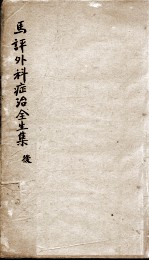 馬評外科症治全生集 後